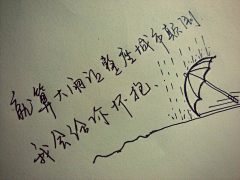 就算大雨让整座城市颠倒
我会给你怀抱.